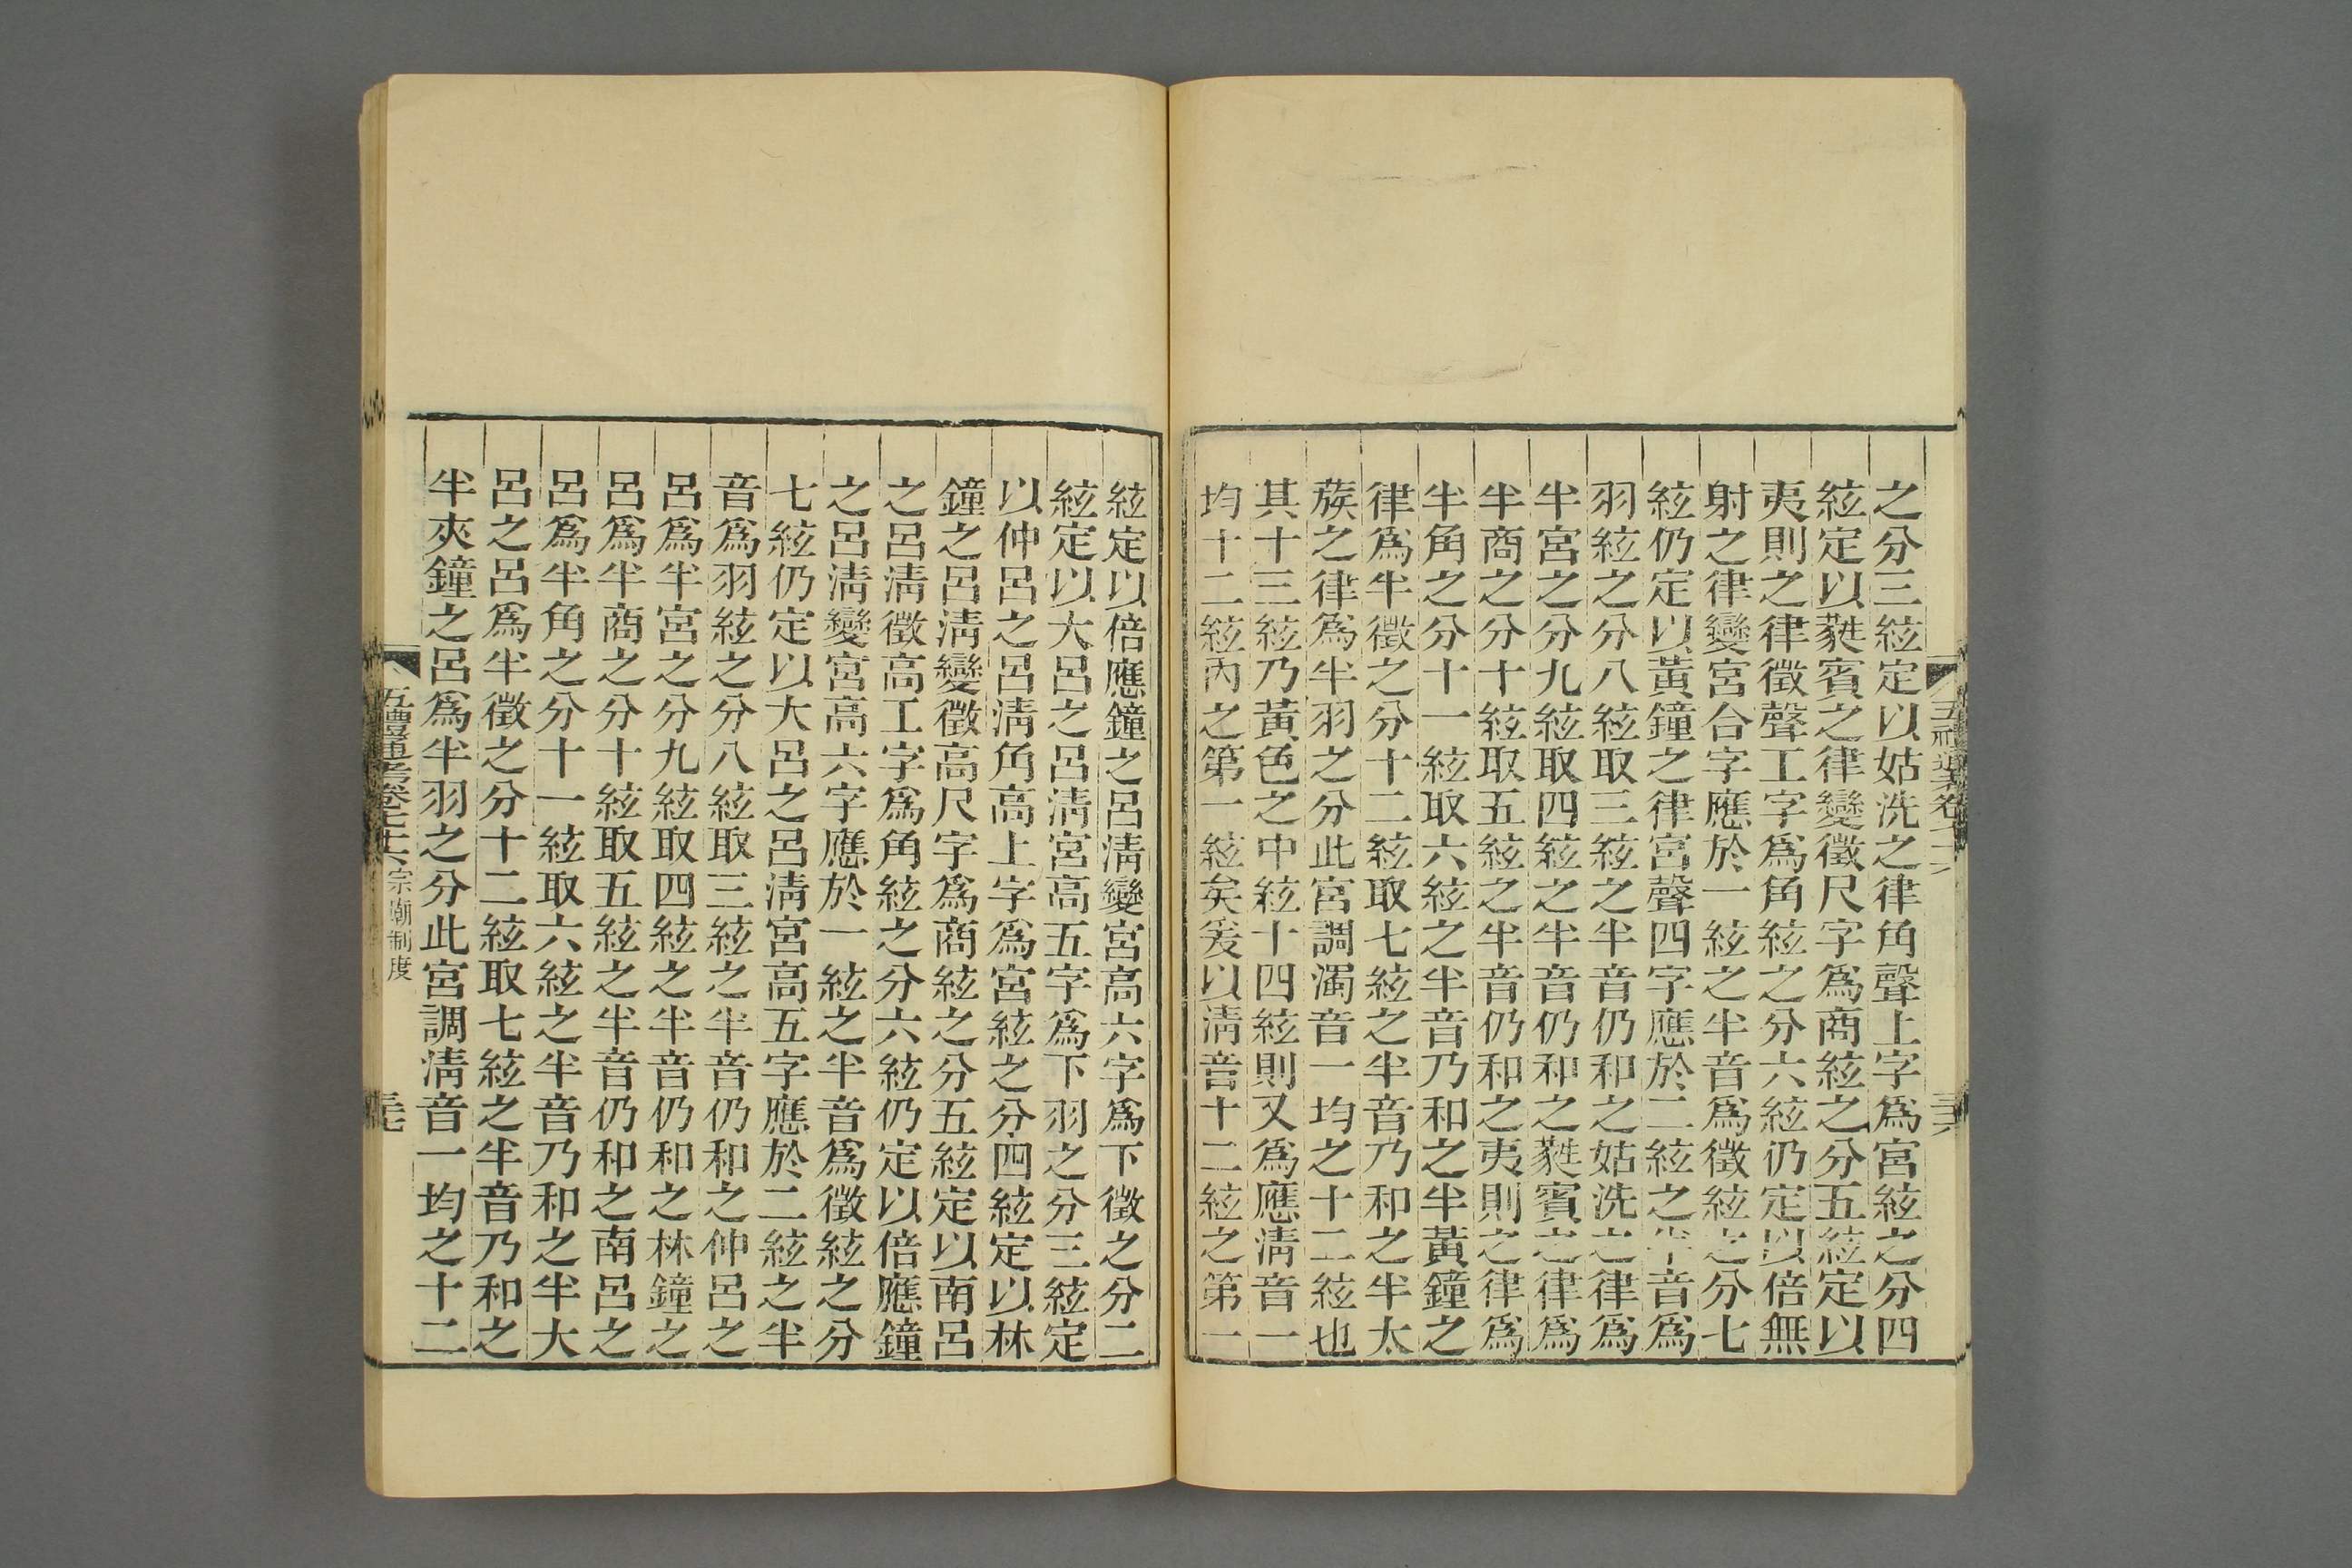 之分三絃定以姑洗之律角聲上字爲宮絃之分四
絃定以蕤賓之律變徵尺字爲商絃之分五絃定以
夷則之律徵聲工字爲角絃之分六絃仍定以倍無
射之律變宮合字應於一絃之半音爲徵絃之分七
絃仍定以黃鐘之律宮聲四字應於二絃之半音爲
羽絃之分八絃取三絃之半音仍和之姑洗之律爲
半宮之分九絃取四絃之半音仍和之蕤賓之律爲
半商之分十絃取五絃之半音仍和之夷則之律爲
半角之分十一絃取六絃之半音乃和之半黃鐘之
律爲半徵之分十二絃取七絃之半音乃和之半太
蔟之律爲半羽之分此宮調濁音一均之十二絃也
其十三絃乃黃色之中絃十四絃則又爲應淸音一
均十二絃丙之第一絃矣爰以淸音十二絃之第一
絃定以倍應鐘之呂淸變宮高六字爲下徵之分二
絃定以大呂之呂淸宮高五字爲下羽之分三絃定
以仲呂之呂淸角高上字爲宮絃之分四絃定以林
鐘之呂淸變徵高尺字爲商絃之分五絃定以南呂
之呂淸徵高工字爲角絃之分六絃仍定以倍應鐘
之呂淸變宮高六字應於一絃之半音爲徵絃之分
七絃仍定以大呂之呂淸宮高五字應於二絃之半
音爲羽絃之分八絃取三絃之半音仍和之仲呂之
呂爲半宮之分九絃取四絃之半音仍和之林鐘之
呂爲半商之分十絃取五絃之半音仍和之南呂之
呂爲半角之分十一絃取六絃之半音乃和之半大
呂之呂爲半徵之分十二絃取七絃之半音乃和之
半夾鐘之呂爲半羽之分此宮調淸音一均之十二
五禮通考卷七十六 宗廟制度